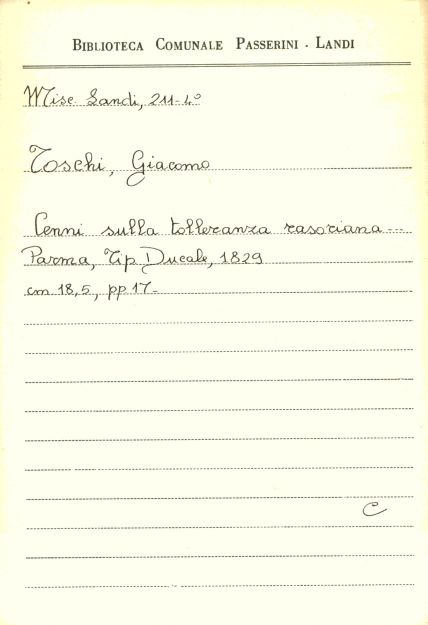 BIBLIOTECA COMUNALE PASSERINI - LANDI
Misc Landi, 211-4º
Toschi, Giacomo
Cenni sulla tolleranza rasoriana ---
Parma, Tip Ducale, 1829
cm 18,5, pp 17-
C